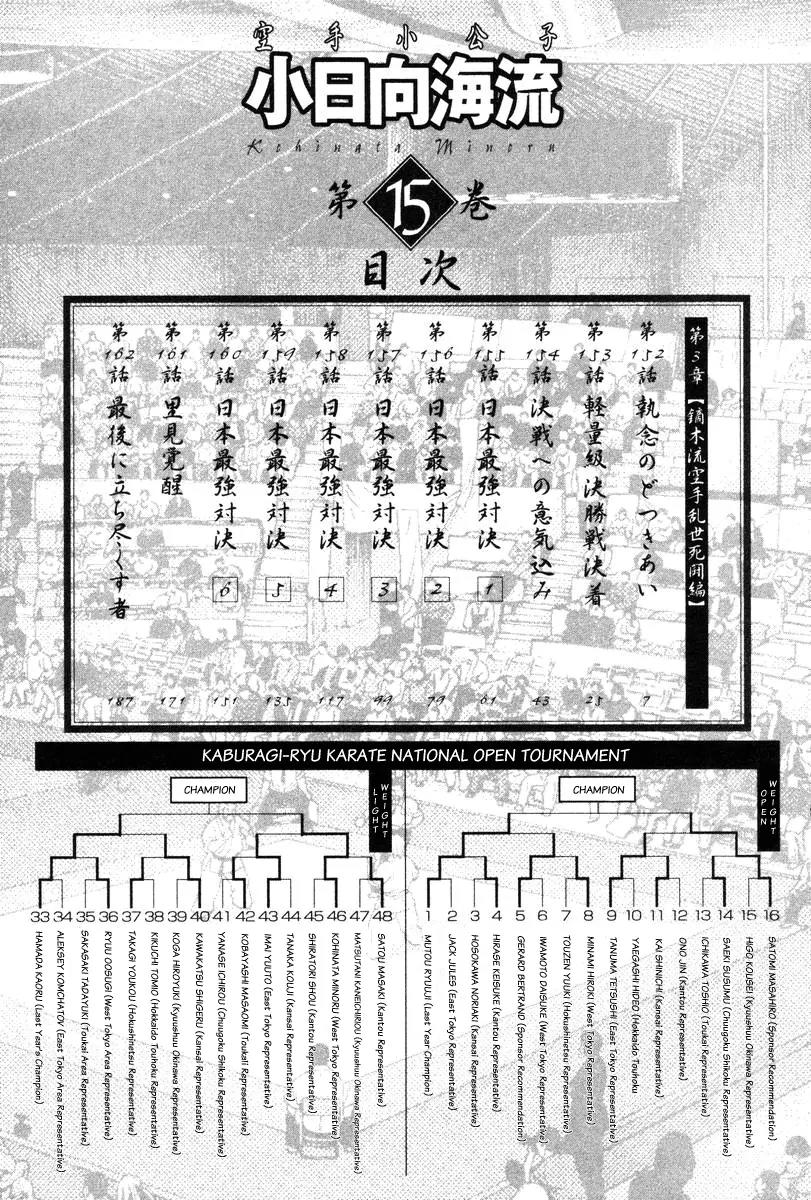 空手小公子
小日向海流
Kohinata Minoru
第15巻
目次
第3章【鏑木流空手乱世死闘編】
第152話 執念のどつきあい 7
第153話 軽量級決勝戦決着 25
第154話 決戦への意気込み 43
第155話 日本最強対決 1 61
第156話 日本最強対決 2 79
第157話 日本最強対決 3 99
第158話 日本最強対決 4 117
第159話 日本最強対決 5 135
第160話 日本最強対決 6 151
第161話 里見覚醒 171
第162話 最後に立ち尽くす者 187
KABURAGI-RYU KARATE NATIONAL OPEN TOURNAMENT
WEIGHT OPEN
CHAMPION
16 SATOMI MASAHIRO (Sponsor Recommendation)
15 HIGO KOUSEI (Kyuushuu Okinawa Representative)
14 SAEKI SUSUMU (Chuugoku Shikoku Representative)
13 ICHIKAWA TOSHIO (Toukai Representative)
12 ONO JIN (Kantou Representative)
11 KAI SHINICHI (Kansai Representative)
10 YAEGASHI HIDEO (Hokkaido Touhoku
9 TANUMA TETSUSHI (East Tokyo Representative)
8 MINAMI HIROKI (West Tokyo Representative)
7 TOUZEN YUUKI (Hokushinetsu Representative)
6 IWAMOTO DAISUKE (West Tokyo Representative)
5 GERARD BERTRAND (Sponsor Recommendation)
4 HIRASE KEISUKE (Kantou Representative)
3 HOSOKAWA NORIAKI (Kansai Representative)
2 JACK JULES (East Tokyo Representative)
1 MUTOU RYUUJI (Last Year Champion)
WEIGHT LIGHT
CHAMPION
48 SATOU MASAKI (Kantou Representative)
47 MATSUTANI KANEICHIROU (Kyuushuu Okinawa Representative)
46 KOHINATA MINORU (West Tokyo Representative)
45 SHIRATORI SHOU (Kantou Representative)
44 TANAKA KOUJI (Kansai Representative)
43 IMAI YUUTO (East Tokyo Representative)
42 KOBAYASHI MASAOMI (Toukai Representative)
41 YANASE ICHIROU (Chuugoku Shikoku Representative)
40 KAWAKATSU SHIGERU (Kansai Representative)
39 KOGA HIROYUKI (Kyuushuu Okinawa Representative)
38 KIKUCHI TOMIO (Hokkaido Touhoku Representative)
37 TAKAGI YOUKOU (Hokushinetsu Representative)
36 RYUU OOSUGI (West Tokyo Area Representative)
35 SAKASAKI TADAYUKI (Toukai Area Representative)
34 ALEKSEY KOMCHATOV (East Tokyo Area Representative)
33 HAMADA KAORU (Last Year's Champion)